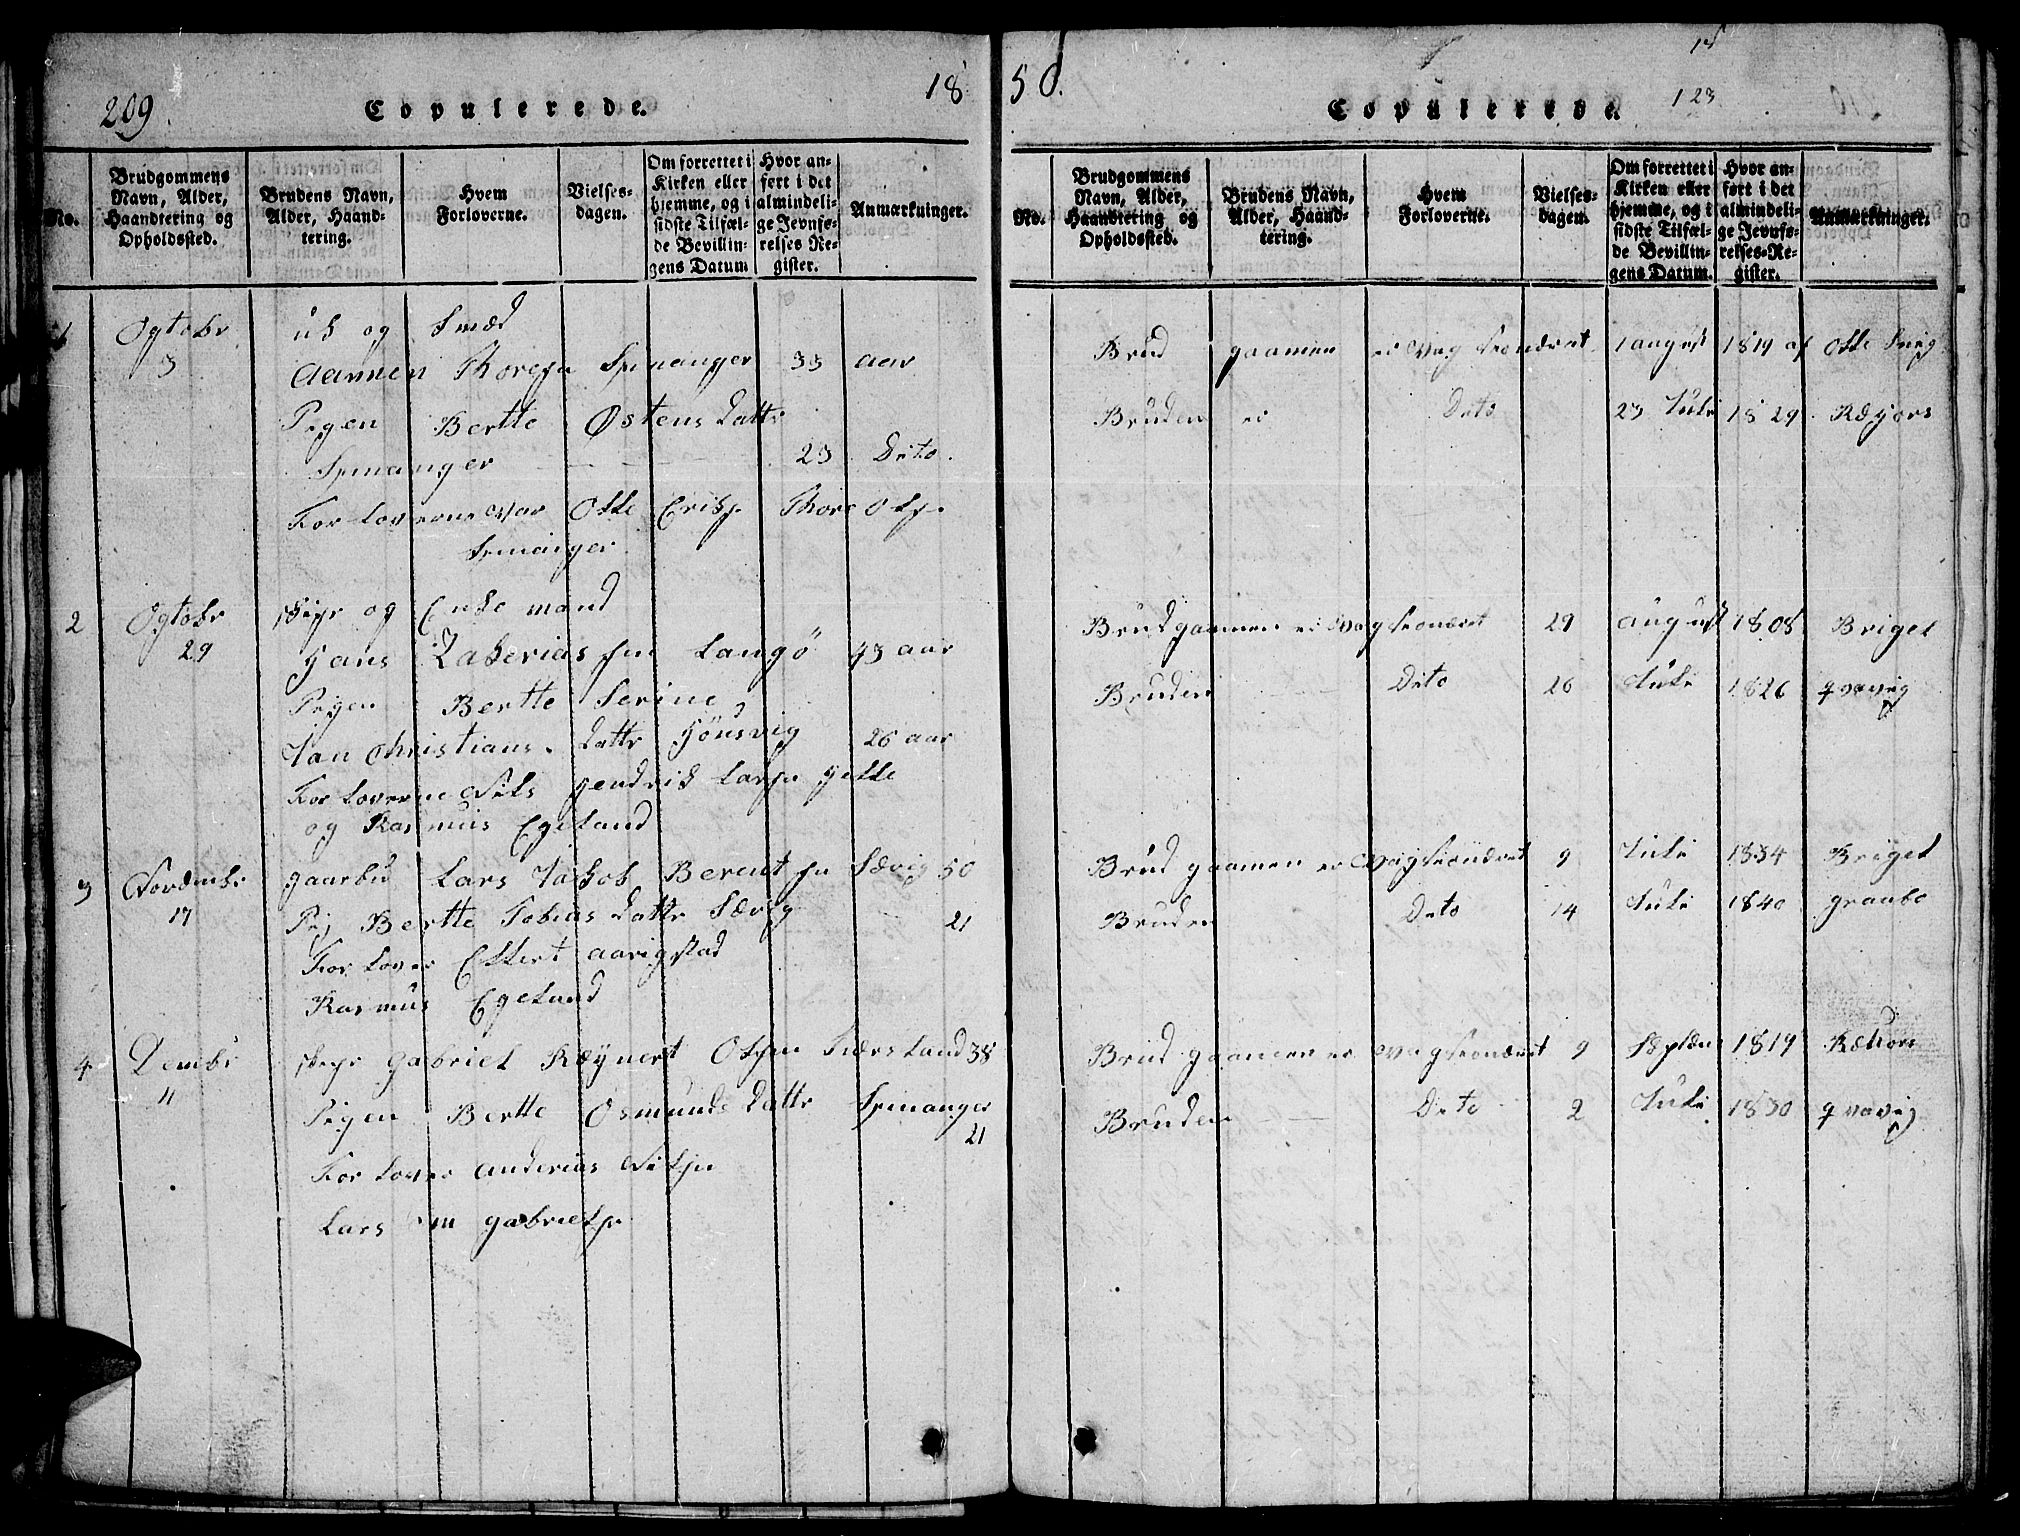 209.
Copulerede.
18
No.
Brudgommens Navn, Alder, Haandtering og Opholdssted.
Brudens Navn, Alder, Haandtering.
Hvem Forloverne.
Vielsesdagen.
Om forrettet i Kirken eller hjemme, og i sidste Tilfælde Bevillingens Datum
Hvor anført i det almindelige Jevnførelses Register.
Anmærkninger.
Ogtobr uk og Smed
3 Aamen Thoresn Spinanger 33 aar
Pigen Bertte Østens Dattr
Spinanger 23 Dito.
Forloverne var Otte Eriksn Thore Olsn
Spinanger
2 Ogtobr skipr og Enke mand
29 Hans Zakeriassn Langö 43 aar
Pigen Bertte Serine
Jan Christians. Dattr Hönsvig 26 aar
Forloverne Nils Hendrik Larsn Helle
og Rasmus Egeland
3 gaarbu Lars Jakob Berentsn Sævig 50
17 Pig Bertte Tobias Dattr Sævig 21
Forlover Ellert Aarigstad
Rasmus Egeland
4 Dembr Gabriel Ræynert Olsen 38
11 Pigen Bertte Osmunds Dattr Spinanger
21
Forlover Anderias Nilsn
Lars Gabrielsn
50.
Copulerede.
123
No.
Brudgommens Navn, Alder, Haandtering og Opholdssted.
Brudens Navn, Alder, Haandtering.
Hvem Forloverne.
Vielsesdagen.
Om forrettet i Kirken eller hjemme, og i sidste Tilfælde Bevillingens Datum.
Hvor anført i det almindelige Jevnførelses-Register.
Anmærkninger.
Brud gaamen er vagsionæret 1 august 1819 af Otte
Bruden er Dito 23 Juli 1829 Ræyors
Brudgaamen er vagsionæret 29 august 1808 Brigel
Bruden Dito 26 Juli 1826 qvavig
Brud gaamen er vagsionæret 9 Juli 1834 Brigel
Bruden Dito 14 Juli 1840 graabo
Brud gaamen er vagsionæret 9 1819
Bruden Dito 2 Juli 1830 qvavig